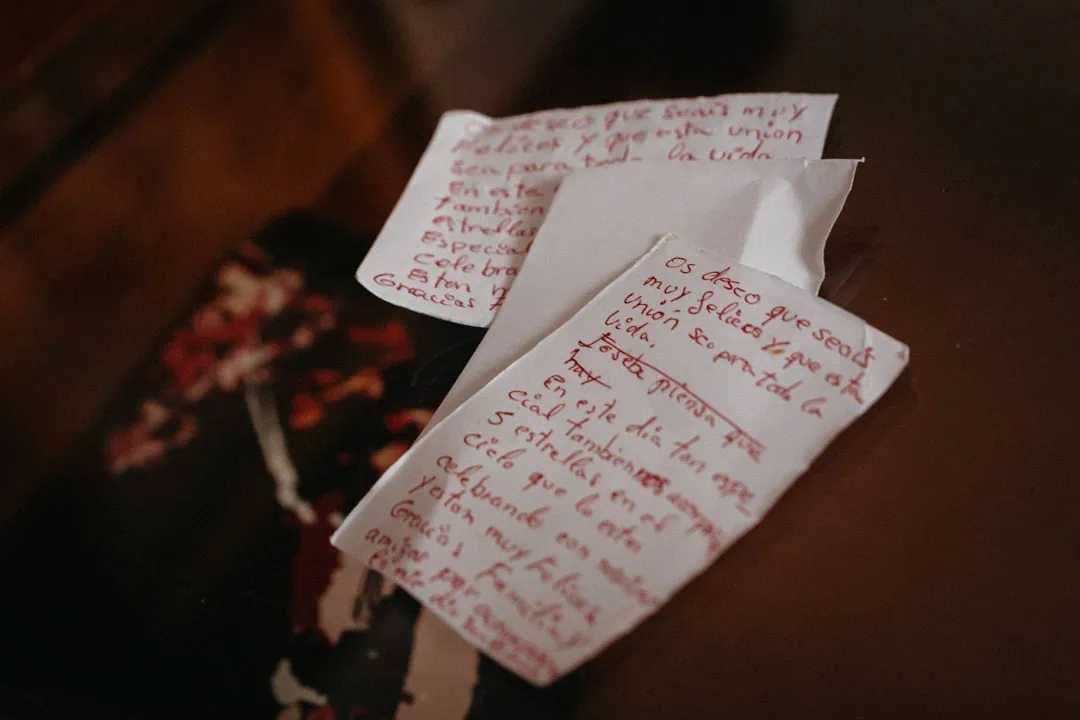 deseo que seais muy
felices y que esta union
sea para toda la vida
En este
Tambien
estrellas
Especial
celebra
Estan
Gracias
Os deseo que seais
muy felices y que esta
unión sea para toda la
vida.
Joseba piensa que
hay
En este dia tan espe
cial tambien nos
5 estrellas en el
cielo que lo estan
celebrando con
y estan muy felices
Gracias Familia y
amigos por